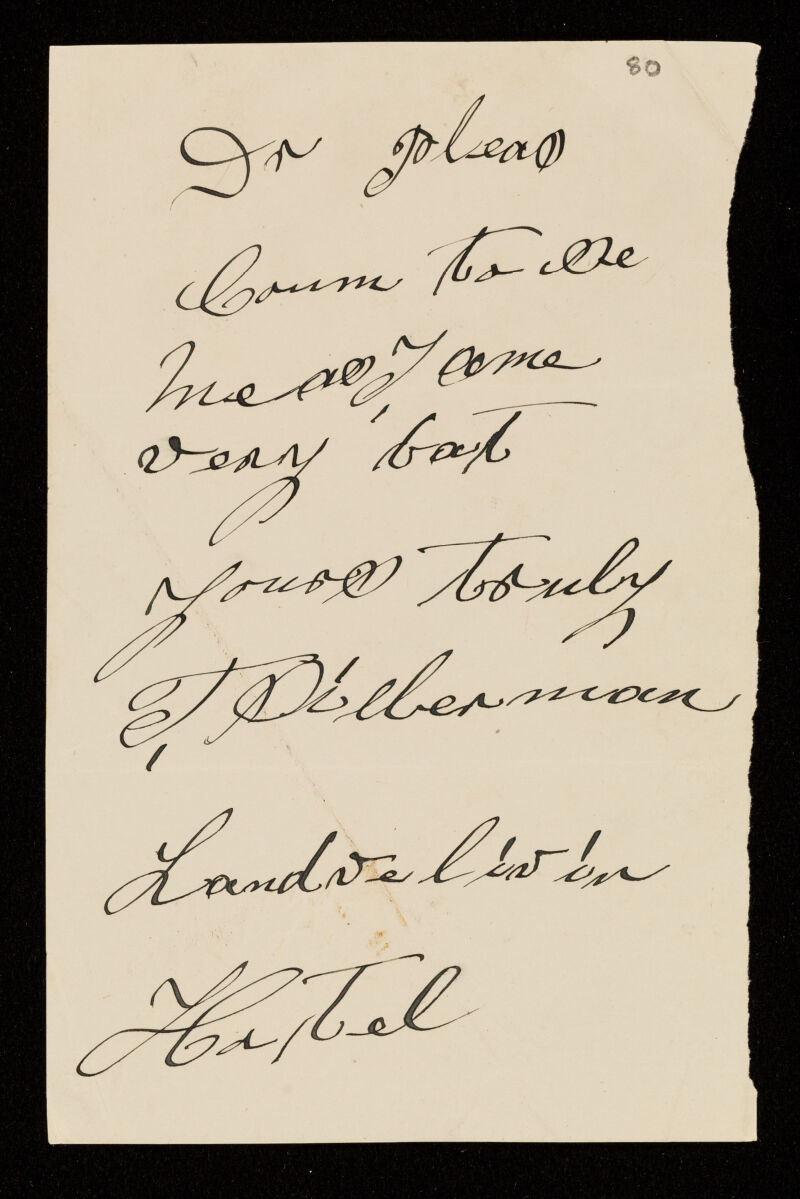 80
Dr pleas
Coum to See
me as I ame
very bat
yours truly
Silberman
Land ve liv in
Hotel